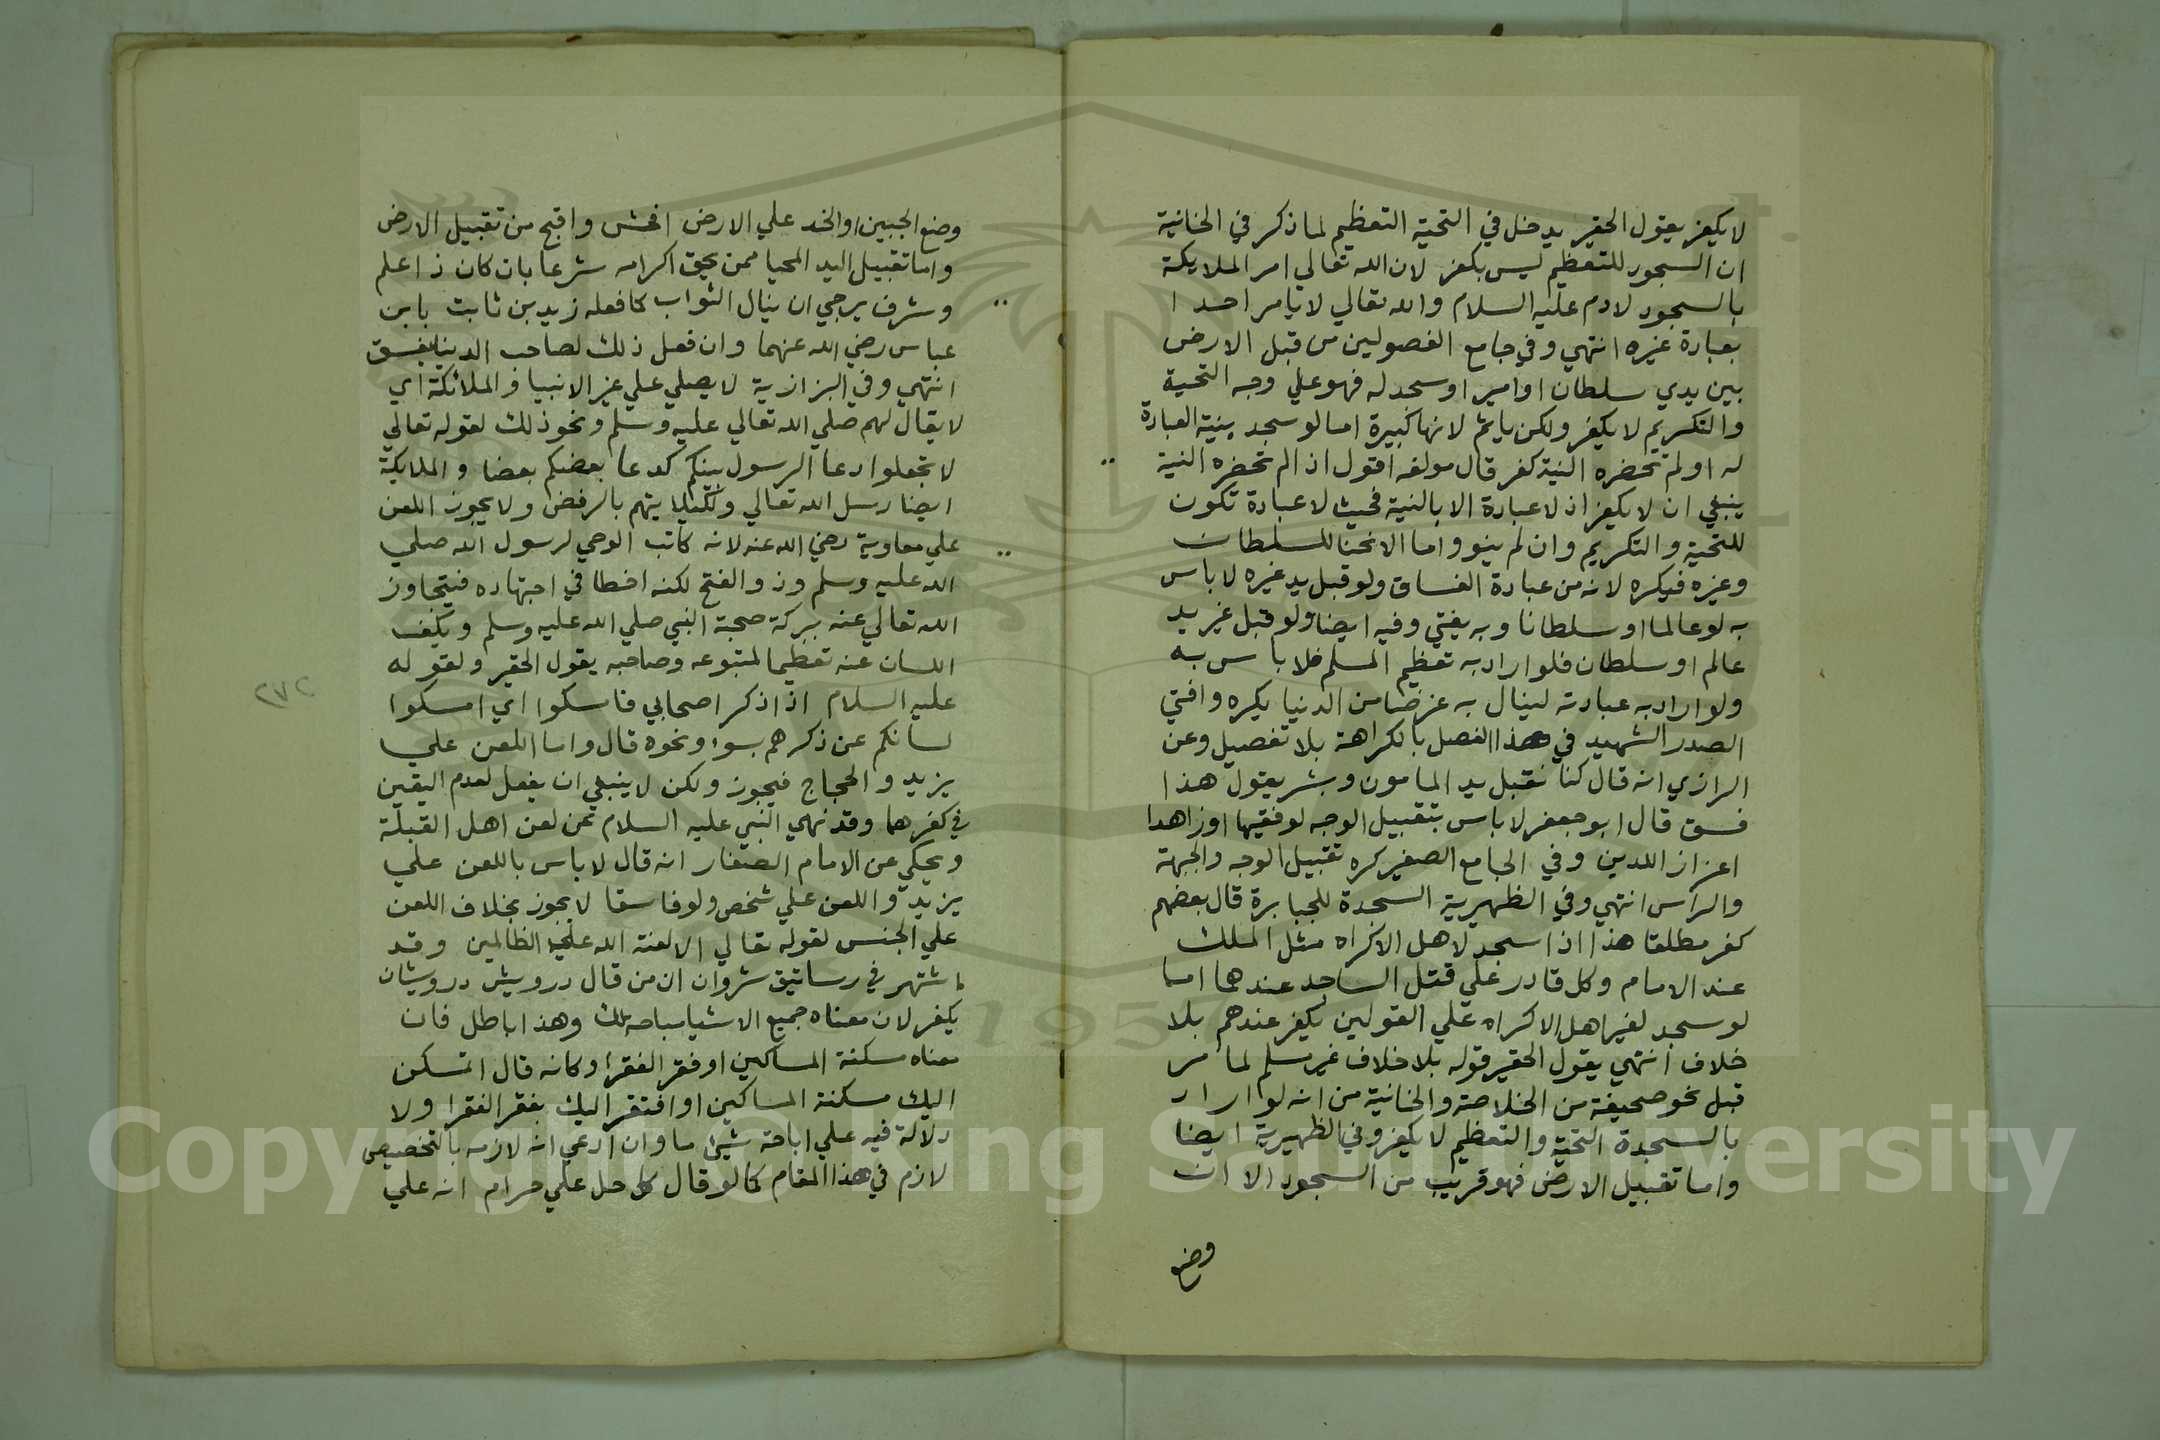 لا يكفر يقول الحقير يدخل في التحية التعظيم لما ذكر في الخانية
ان السجود للتعظيم ليس بكفر لان الله تعالي امر الملايكة
بالسجود لادم عليه السلام والله تعالي لا يامر احدا
بعبادة غيره انتهي وفي جامع الفصولين من قبل الارض
بين يدي سلطان او امير او سجد له فهو علي وجه التحية
والتكريم لا يكفر ولكن ياثم لانها كبيرة اما لو سجد بنية العبادة
له او لم تحضره النية كفر قال مولفه اقول اذ الم تحضره النية
ينبغي ان لا يكفر اذ لا عبادة الا بالنية فحيث لا عبادة تكون
للتحية والتكريم وان لم ينو واما الانحنا للسلطان
وغيره فيكره لانه من عبادة الفساق ولو قبل يد غيره لا باس
به لو عالما او سلطانا وبه يفتي وفيه ايضا ولو قبل غير يد
عالم او سلطان فلو اراد به تعظيم المسلم فلا باس به
ولو اراد به عبادته لينال به غرضا من الدنيا يكره وافتي
الصدر الشهيد في هذا الفصل بالكراهة بلا تفصيل وعن
الرازي انه قال كنا نقبل يد المامون وبشر يقول هذا
فسق قال ابو جعفر لا باس بتقبيل الوجه لو فقيها او زاهدا
اعزاز اللدين وفي الجامع الصغير كره تقبيل الوجه والجبهة
والراس انتهي وفي الظهيرية السجدة للجبابرة قال بعضهم
كفر مطلقا هذا اذا سجد لاهل الاكراه مثل الملك
عند الامام وكل قادر علي قتل الساجد عندهما اما
لو سجد لغير اهل الاكراه علي القولين يكفر عندهم بلا
خلاف انتهي يقول الحقير قوله بلا خلاف غير مسلم لما مر
قبل نحو صحيفة من الخلاصة والخانية من انه لو اراد
بالسجدة التحية والتعظيم لا يكفر وفي الظهيرية ايضا
واما تقبيل الارض فهو قريب من السجود الا ان
وضع
وضع الجبين او الخد علي الارض افحش واقبح من تقبيل الارض
واما تقبيل اليد المحيا ممن يحق اكرامه شرعا بان كان ذا علم
وشرف يرجي ان ينال الثواب كما فعله زيد بن ثابت بابن
عباس رضي الله عنهما وان فعل ذلك لصاحب الدنيا يفسق
انتهي وفي البزازية لا يصلي علي غير الانبيا والملائكة اي
لا يقال لهم صلي الله تعالي عليه وسلم ونحو ذلك لقوله تعالي
لا تجعلوا دعا الرسول بينكم كدعا بعضكم بعضا والملايكة
ايضا رسل الله تعالي ولئلا يتهم بالرفض ولا يجوز اللعن
علي معاوية رضي الله عنه لانه كاتب الوحي لرسول الله صلي
الله عليه وسلم وذو الفتح لكنه اخطا في اجتهاده فيتجاوز
الله تعالي عنه ببركة صحبة النبي صلي الله عليه وسلم ويكف
اللسان عنه تعظيما لمتبوعه وصاحبه يقول الحقير ولقوله
عليه السلام اذا ذكر اصحابي فاسكوا اي امسكوا
لسانكم عن ذكرهم بسوء ونحوه قال واما اللعن علي
يزيد والحجاج فيجوز ولكن لا ينبغي ان يفعل لعدم اليقين
في كفرهما وقد نهي النبي عليه السلام عن لعن اهل القبلة
ويحكي عن الامام الصفار انه قال لا باس باللعن علي
يزيد واللعن علي شخص ولو فاسقا لا يجوز بخلاف اللعن
علي الجنس لقوله تعالي الا لعنة الله علي الظالمين وقد
اشتهر في رساتيق شروان ان من قال درويش درويشان
يكفر لان معناه جميع الاشيا مباحة لك وهذا باطل فان
معناه سكنة المساكين او فقر الفقرا وكانه قال اتمسكن
اليك مسكنة المساكين او افتقر اليك بفقر الفقرا ولا
دلالة فيه علي اباحة شيئ ما وان ادعي انه لازمه بالتخصيص
لازم في هذا المقام كما لو قال كل حل علي حرام انه علي
٢٧٢
Copyright © King Saud University
1957